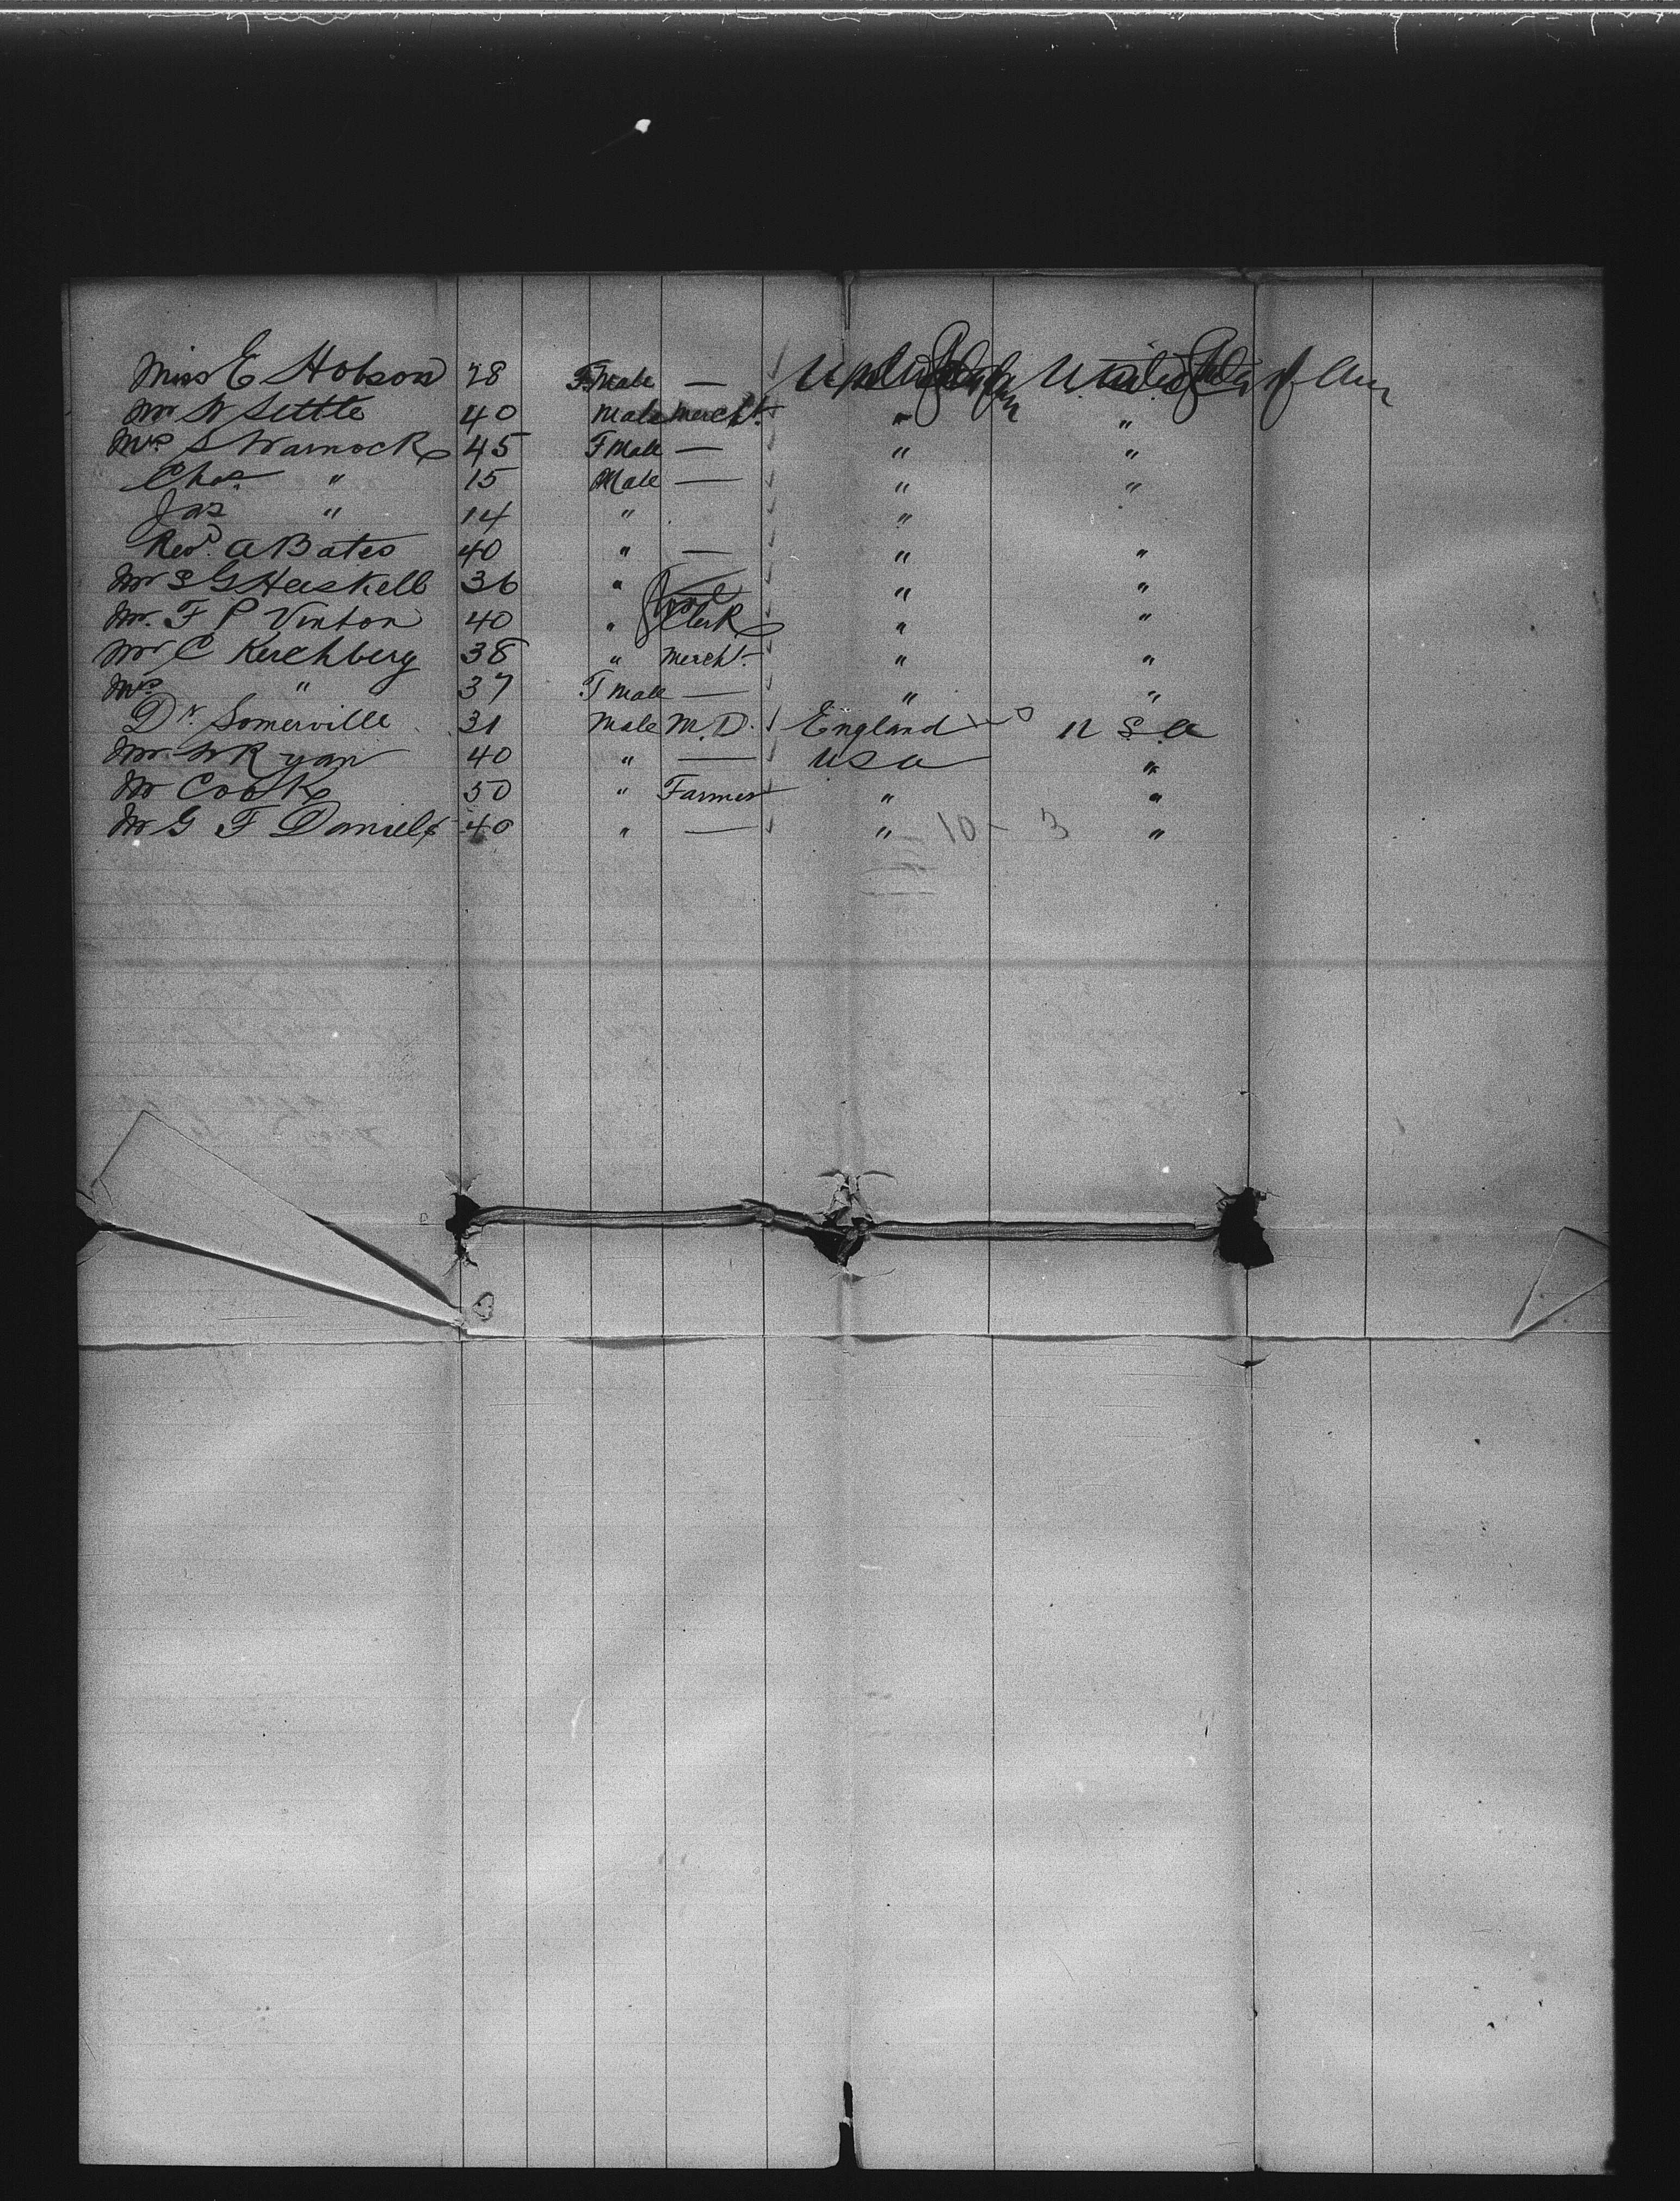 Miss E Hobson 28 F.Male — United States of Am United States of Am
Mr W Settle 40 Male Mercht. " "
Mrs S Warnock 45 F Male — " "
Chas. " 15 Male — " "
Jas " 14 " "
Revd. A Bates 40 " — " "
Mr S G Haskell 36 " " "
Mr. F P Vinton 40 " Clerk " "
Mr C Kerchberg 38 " Mercht. " "
Mrs " 37 F Male — " "
Dr. Somerville 31 Male M.D. England U S A
Mr. W Ryan 40 " — U S A "
Mr Cook 50 " Farmer " "
Mr G F Daniels 40 " — " 10 - 3 "